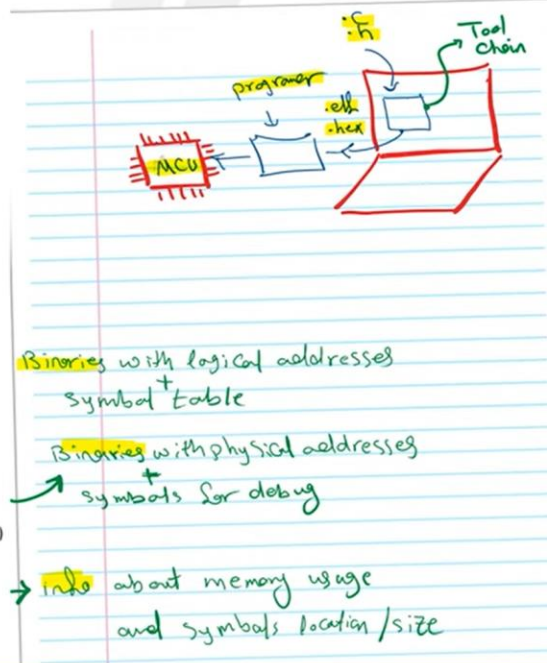 .c
.h
Tool
chain
programer
.elf
.hex
MCU
Binaries with logical addresses
+
symbol table
Binaries with physical addresses
+
symbols for debug
)
→ info about memory usage
and symbols location/size